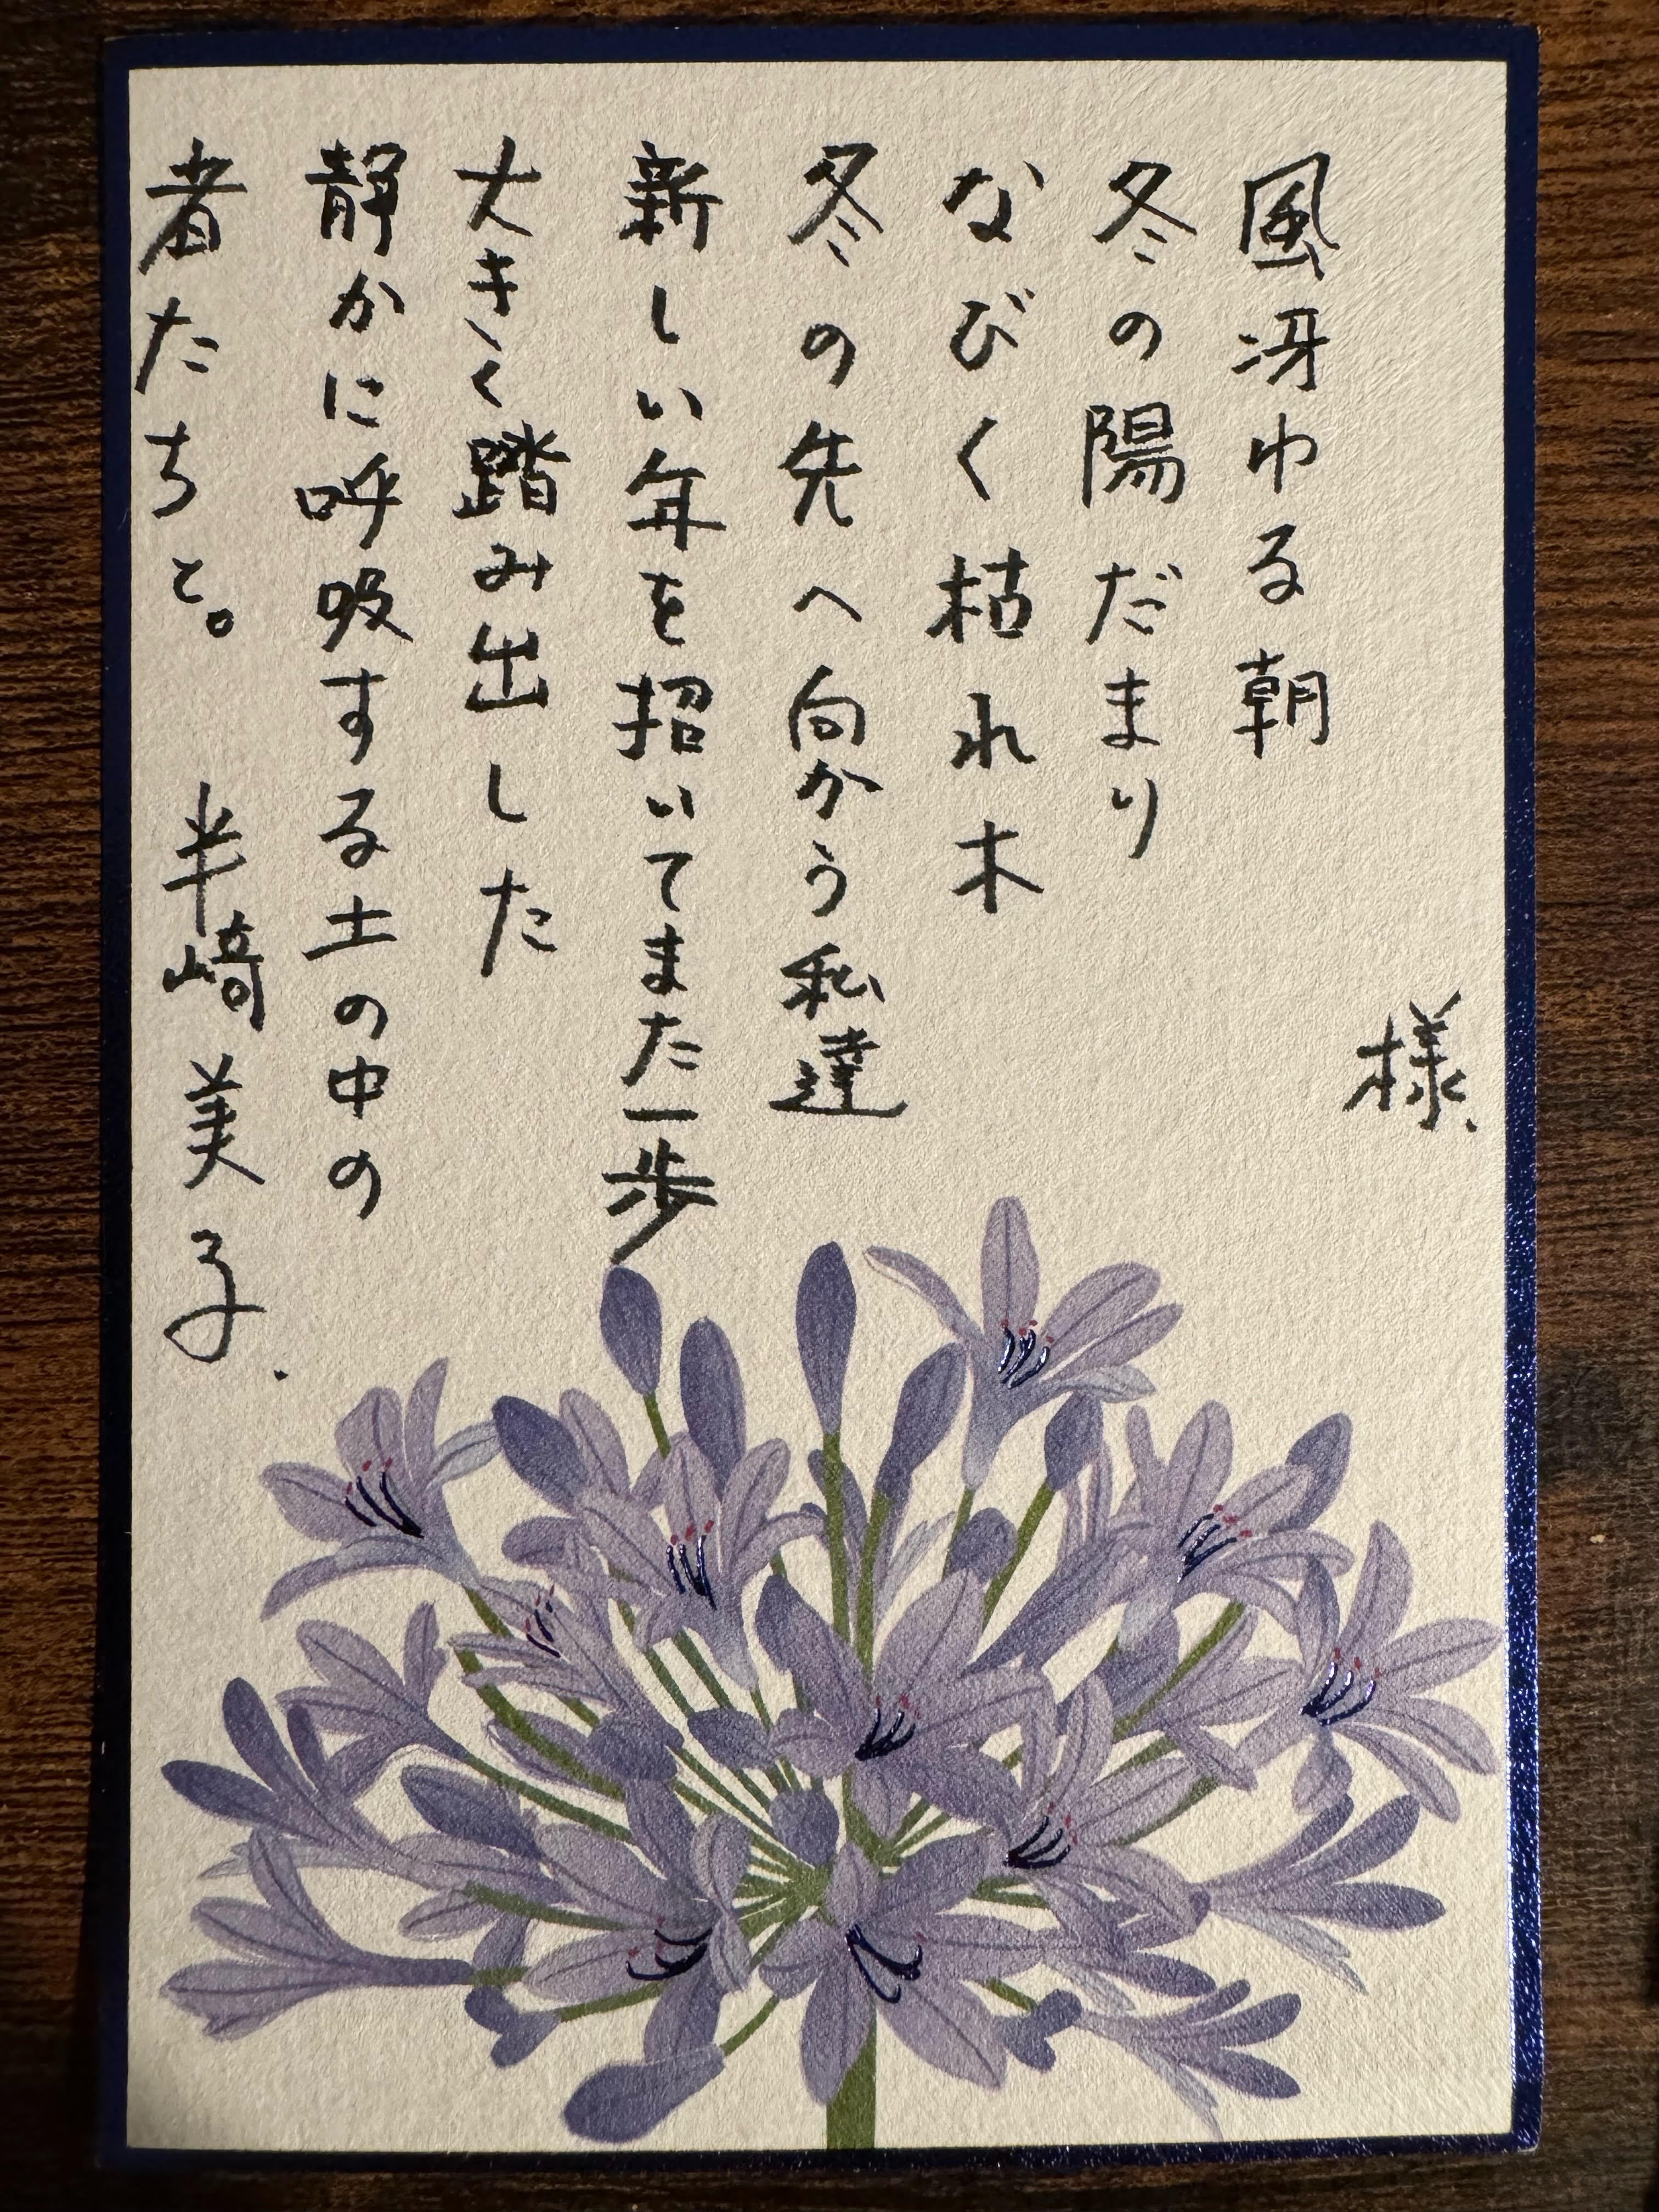 様
風冴ゆる朝
冬の陽だまり
なびく枯れ木
冬の先へ向かう私達
新しい年を招いてまた一歩
大きく踏み出した
静かに呼吸する土の中の
者たちと。 半崎美子